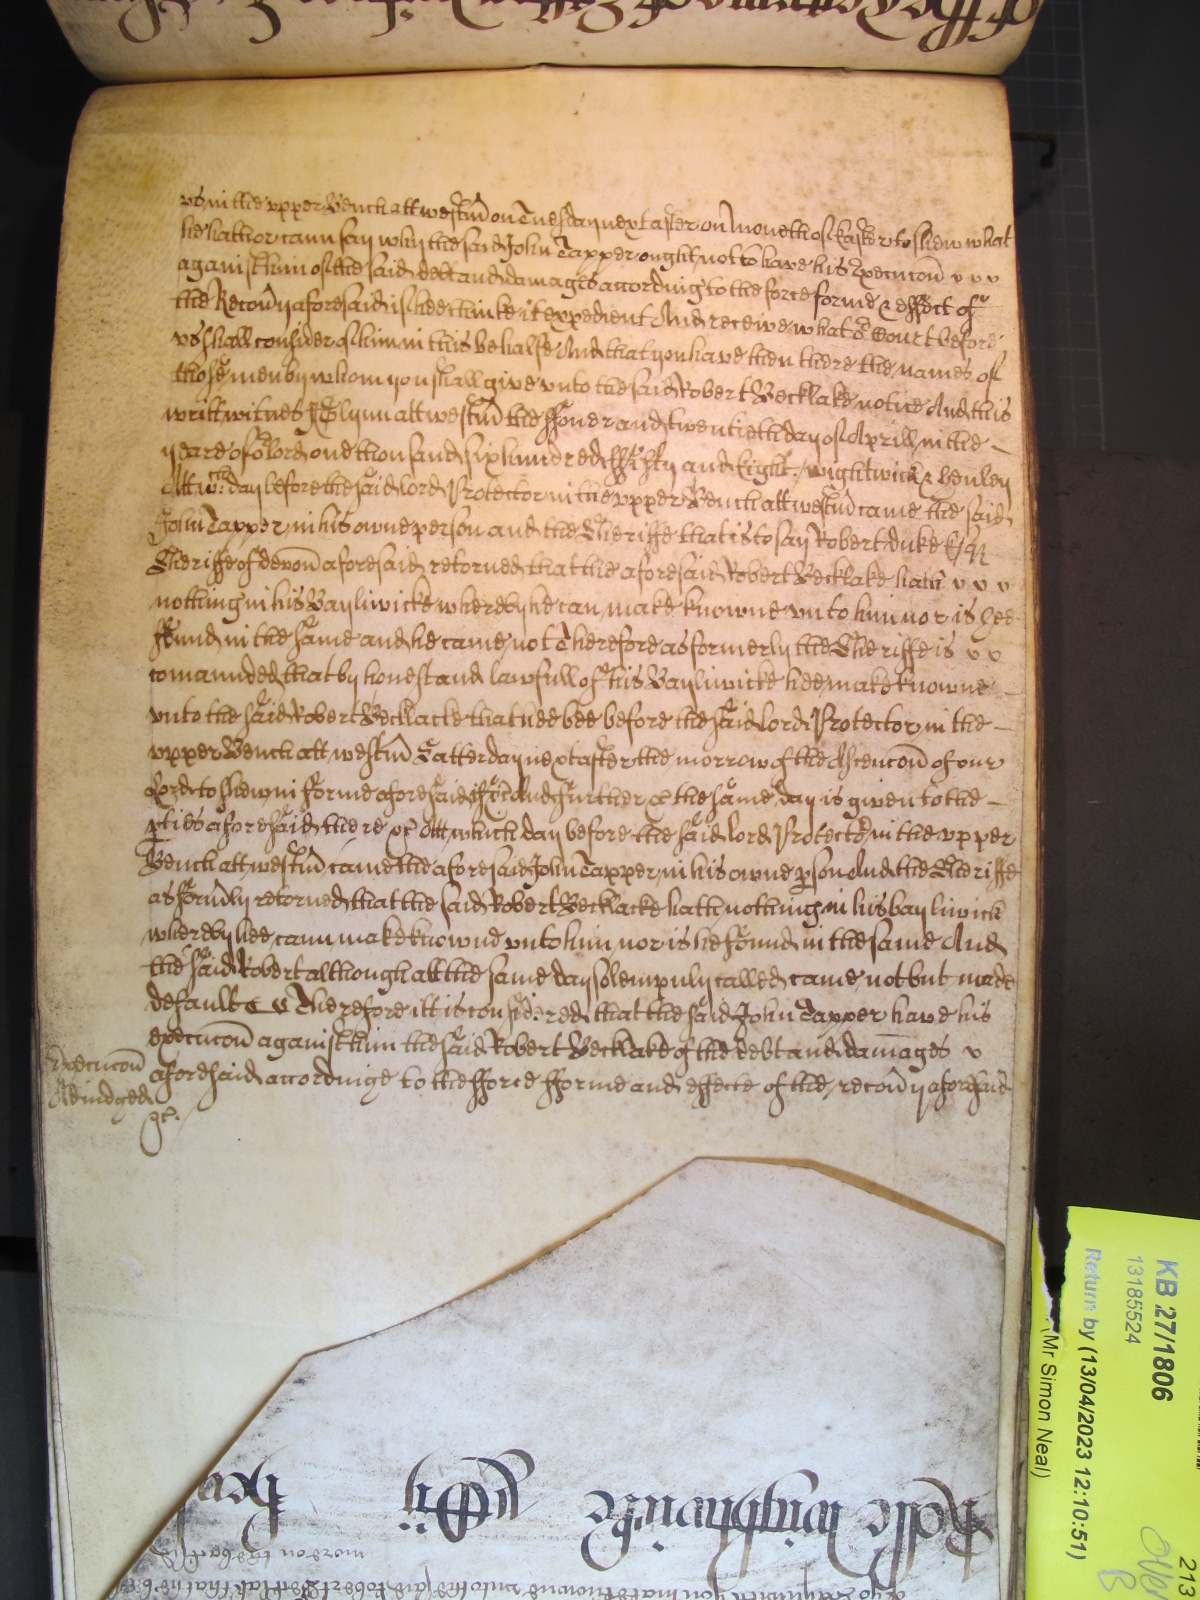 vs in the vpper Bench att Westm̄ on Tuesday next after on moneth of Easter to shew what
he hath or cann say why the said John Tapper ought not to have his Execuc̄on v v v
against him of the said debt and damages according to the force forme & effect of
the Recov̄y aforesaid if hee thinke it expedient And receive what ye Court before
vs shall consider of him in this behalfe And that you have then there the names of
those men by whom you shall give vnto the said Robert Becklake notice And this
writt witnes Glynn att Westm̄ the ffower and twentieth day of Aprill in the
yeare of or lord one thousand six hundred ffifty and Eight : Wightwick & Henley
Att wch day before the said lord Protector in the vpper Bench att Westm̄ came the said
John Tapper in his owne person and the Sheriffe that is to say Robert Duke Esqr
Sheriffe of Devon̄ aforesaid retorned that the aforesaid Robert Becklake hath v v v
nothing in his Bayliwicke whereby he can make knowne vnto him nor is hee
ffound in the same and he came not Therefore as formerly the Sheriffe is v v
comannded that by honest and lawfull of his Bayliwicke hee make knowne
vnto the said Robert Becklacke that hee bee before the said lord Protector in the
vpper Bench att Westm̄ Satterday next after the morrow of the Ascenc̄on of our
Lord to shew in forme aforesaid if &c And further &c the same day is given to the
p̱ties aforesaid there &c Att which day before the said lord Protector in the vpper
Bench att Westm̄ came the aforesaid John Tapper in his owne p̱son And the Sheriffe
as form̄ly retorned that the said Robert Becklacke hath nothing in his bayliwick
whereby hee cann make knowne vnto him nor is he found in the same And
the said Robert although att the same day solempnly called came not but made
default Therefore itt is considered that the said John Tapper have his
execuc̄on against him the said Robert Becklake of the debt and dam̄ages v
aforesaid accordinge to the fforce fforme and effecte of the recov̄y aforesaid
&c.
Execuc̄on
Adiudged
more on the back
KB 27/1806
13185524
Return by (13/04/2023 12:10:51)
(Mr Simon Neal)
213
over